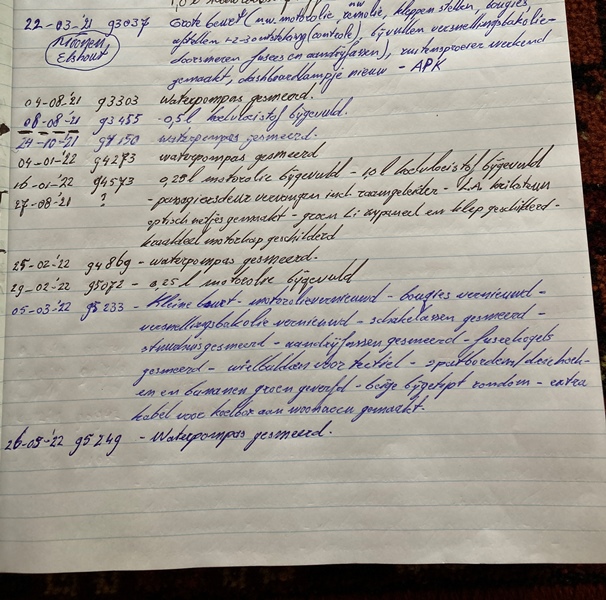 nw
22-03-'21 93037 Grote beurt (nw. motorolie, remolie, kleppen stellen, bougies,
Elshout afstellen 1-2-3 ontsteking (controle), bijvullen versnellingsbakolie-
doorsmeren fusees en aandrijfassen), ruitensproeier werkend
gemaakt, dashboardlampje nieuw - APK
04-08-'21 93303 waterpompas gesmeerd.
08-08-'21 93455 0,5 l koelvloeistof bijgevuld.
24-10-'21 94150 waterpompas gesmeerd.
04-01-'22 94273 waterpompas gesmeerd
16-01-'22 94573 0,25 l motorolie bijgevuld - 1,0 l koelvloeistof bijgevuld
27-08-'21 ? - passagiersdeur vervangen incl. raamgeleider -
optisch netjes gemaakt - groen en klep geschilderd -
motorkap geschilderd
25-02-'22 94869 - waterpompas gesmeerd.
29-02-'22 95072 - 0,25 l motorolie bijgevuld
05-03-'22 95233 - Kleine beurt - motorolie vernieuwd - bougies vernieuwd -
versnellingsbakolie vernieuwd - schakelassen gesmeerd -
stuurhuis gesmeerd - aandrijfassen gesmeerd - fuseekogels
gesmeerd - voor - spatborden, driehoek-
en en groen geverfd - beige bijgetipt rondom - extra
kabel voor aan gemaakt.
26-05-'22 95249 - Waterpompas gesmeerd.